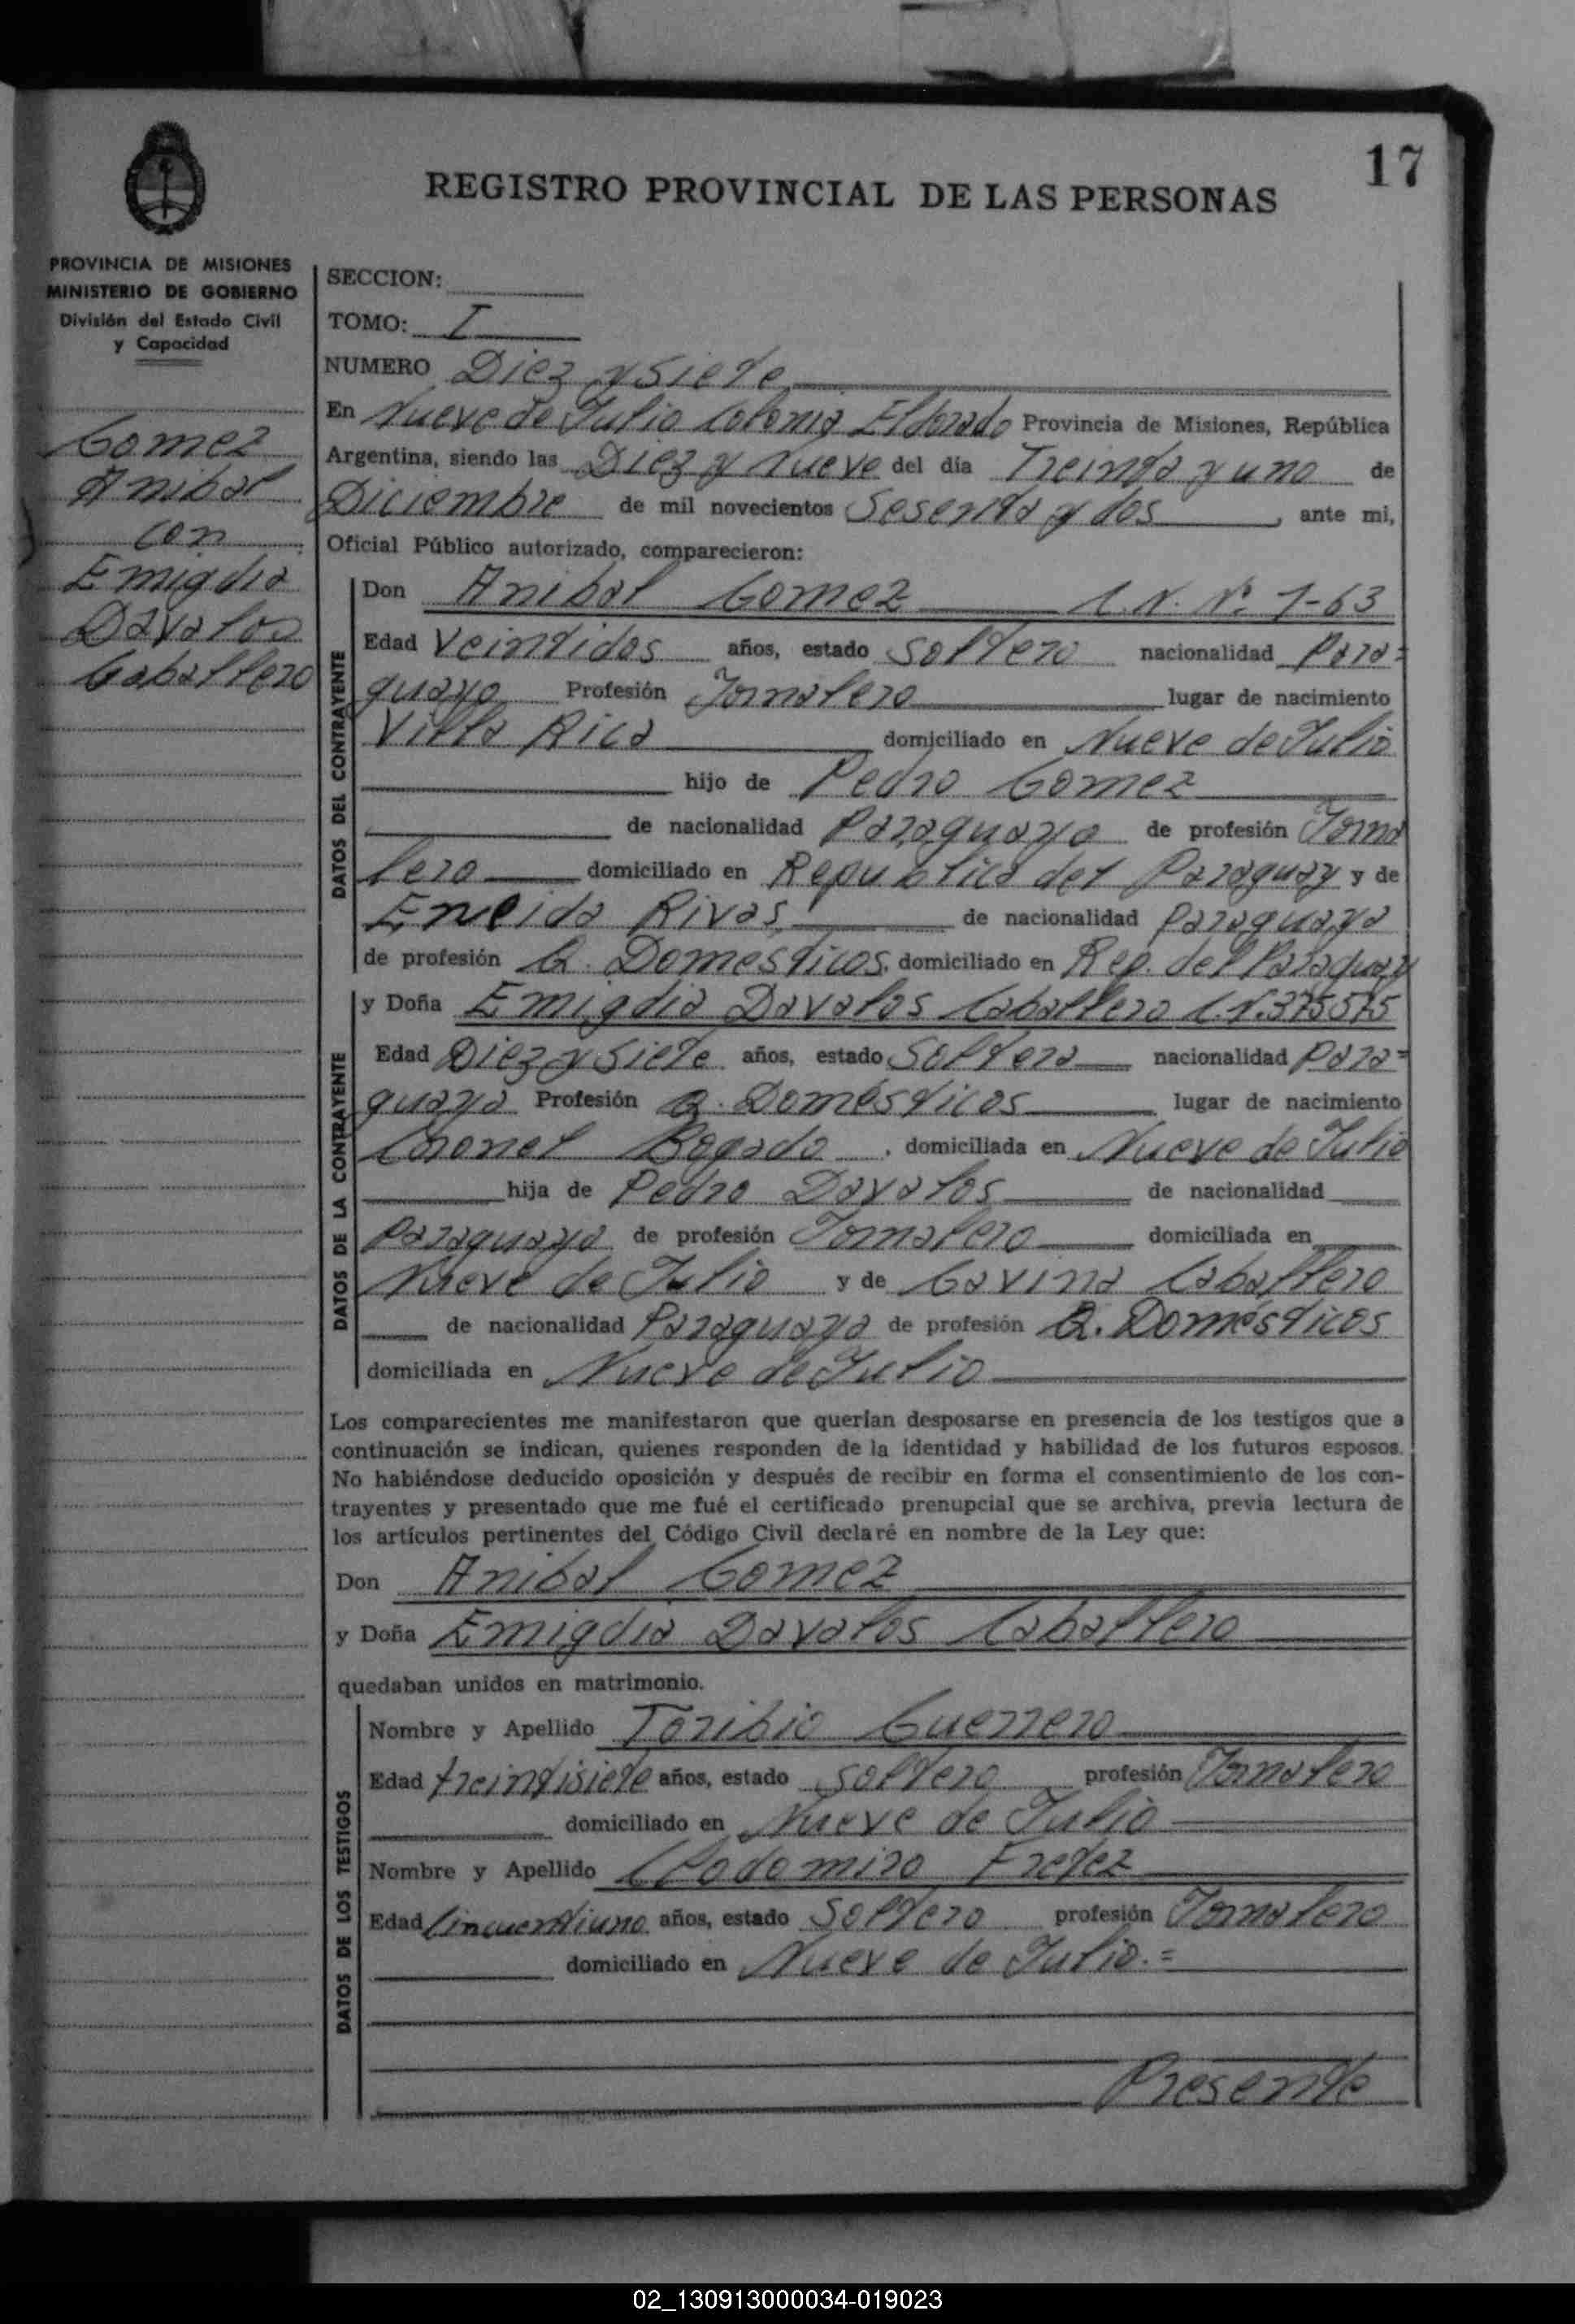 17
REGISTRO PROVINCIAL DE LAS PERSONAS
PROVINCIA DE MISIONES
MINISTERIO DE GOBIERNO
División del Estado Civil
y Capacidad
Gomez
Anibal
con
Emigdia
Davalos
Caballero
SECCION:
TOMO: I
NUMERO Diez y Siete
En Nueve de Julio Colonia Eldorado Provincia de Misiones, República
Argentina, siendo las Diez y Nueve del día Treinta y uno de
Diciembre de mil novecientos Sesenta y dos, ante mi,
Oficial Público autorizado, comparecieron:
DATOS DEL CONTRAYENTE
Don Anibal Gomez C.N. Nº 1-63
Edad Veintidos años, estado Soltero nacionalidad Para=
guayo Profesión Jornalero lugar de nacimiento
Villa Rica domiciliado en Nueve de Julio
hijo de Pedro Gomez
de nacionalidad Paraguayo de profesión Jorna
lero domiciliado en Republica del Paraguay y de
Eneida Rivas de nacionalidad Paraguaya
de profesión Q. Domésticos, domiciliado en Rep. del Paraguay
DATOS DE LA CONTRAYENTE
y Doña Emigdia Davalos Caballero C.N. 375.575
Edad Diez y Siete años, estado Soltera nacionalidad Para=
guaya Profesión Q. Domésticos lugar de nacimiento
Coronel Bogado, domiciliada en Nueve de Julio
hija de Pedro Davalos de nacionalidad
Paraguayo de profesión Jornalero domiciliada en
Nueve de Julio y de Gavina Caballero
de nacionalidad Paraguaya de profesión Q. Domésticos
domiciliada en Nueve de Julio
Los comparecientes me manifestaron que querían desposarse en presencia de los testigos que a
continuación se indican, quienes responden de la identidad y habilidad de los futuros esposos.
No habiéndose deducido oposición y después de recibir en forma el consentimiento de los con-
trayentes y presentado que me fué el certificado prenupcial que se archiva, previa lectura de
los artículos pertinentes del Código Civil declaré en nombre de la Ley que:
Don Anibal Gomez
y Doña Emigdia Davalos Caballero
quedaban unidos en matrimonio.
DATOS DE LOS TESTIGOS
Nombre y Apellido Toribio Guerrero
Edad treintisiete años, estado soltero profesión Jornalero
domiciliado en Nueve de Julio
Nombre y Apellido Clodomiro Fretez
Edad Cincuentiuno años, estado Soltero profesión Jornalero
domiciliado en Nueve de Julio.=
Presente
02_130913000034-019023